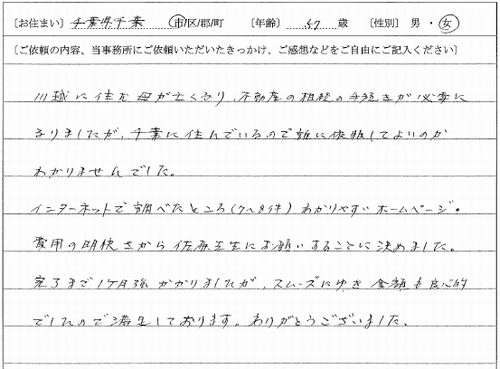 〔お住まい〕 千葉県千葉 市/区/郡/町 〔年齢〕 57 歳 〔性別〕 男 ・ 女
〔ご依頼の内容、当事務所にご依頼いただいたきっかけ、ご感想などをご自由にご記入ください〕
川越に住む母が亡くなり、不動産の相続の手続きが必要に
なりましたが、千葉に住んでいるので誰に依頼してよいのか
わかりませんでした。
インターネットで調べたところ(7〜8件)わかりやすいホームページ・
費用の明快さから佐藤先生にお願いすることに決めました。
完了まで1ヶ月強かかりましたが、スムーズにゆき金額も良心的
でしたので満足しております。ありがとうございました。